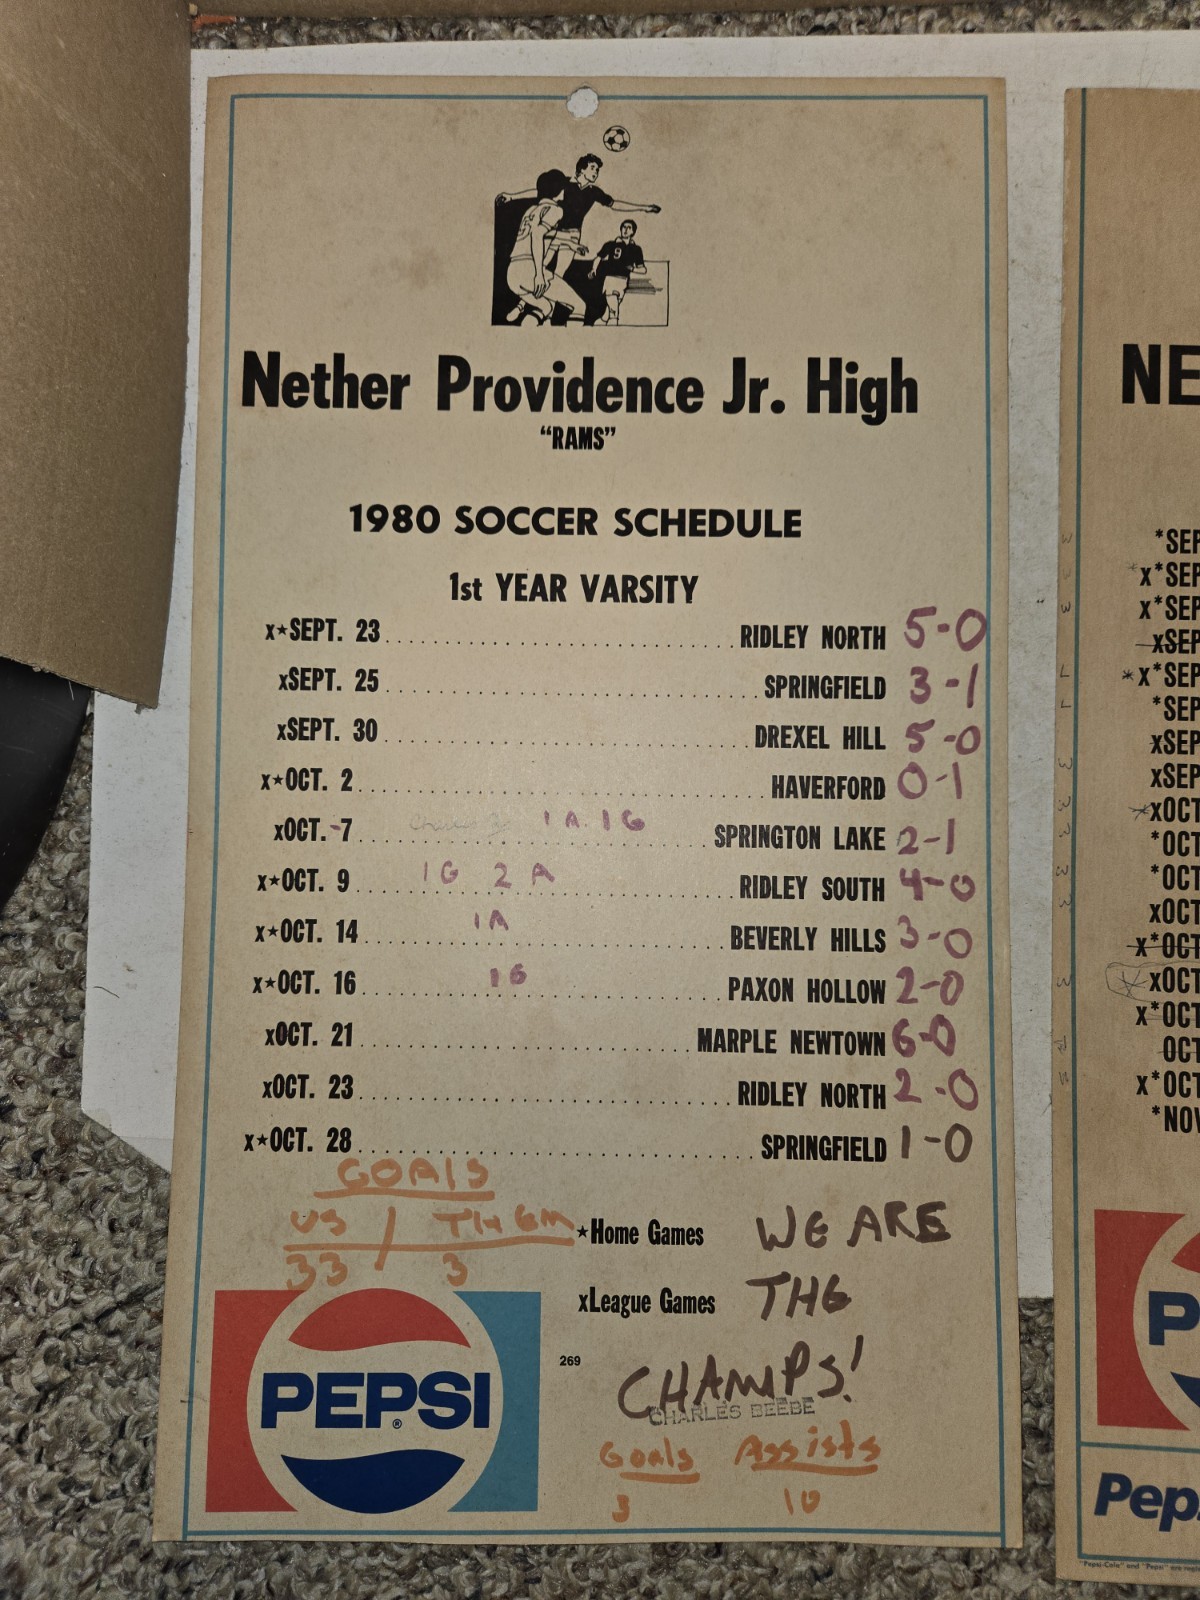 Nether Providence Jr. High
"RAMS"
1980 SOCCER SCHEDULE
1st YEAR VARSITY
x★SEPT. 23 RIDLEY NORTH 5-0
xSEPT. 25 SPRINGFIELD 3-1
xSEPT. 30 DREXEL HILL 5-0
x★OCT. 2 HAVERFORD 0-1
xOCT.-7 1A 1G SPRINGTON LAKE 2-1
x★OCT. 9 1G 2A RIDLEY SOUTH 4-0
x★OCT. 14 1A BEVERLY HILLS 3-0
x★OCT. 16 1G PAXON HOLLOW 2-0
xOCT. 21 MARPLE NEWTOWN 6-0
xOCT. 23 RIDLEY NORTH 2-0
x★OCT. 28 SPRINGFIELD 1-0
GOALS
US / THEM
33 3
★Home Games
xLeague Games
WE ARE
THE
CHAMPS!
CHARLES BEEBE
269
PEPSI®
Goals Assists
3 10
9
NE
*SEP
x*SEP
x*SEP
xSEP
*x*SEP
*SEP
xSEP
xSEP
*xOCT
*OCT
*OCT
xOCT
x*OCT
*xOCT
x*OCT
OCT
x*OCT
*NOV
P
Pep
"Pepsi-Cola" and "Pepsi" are reg